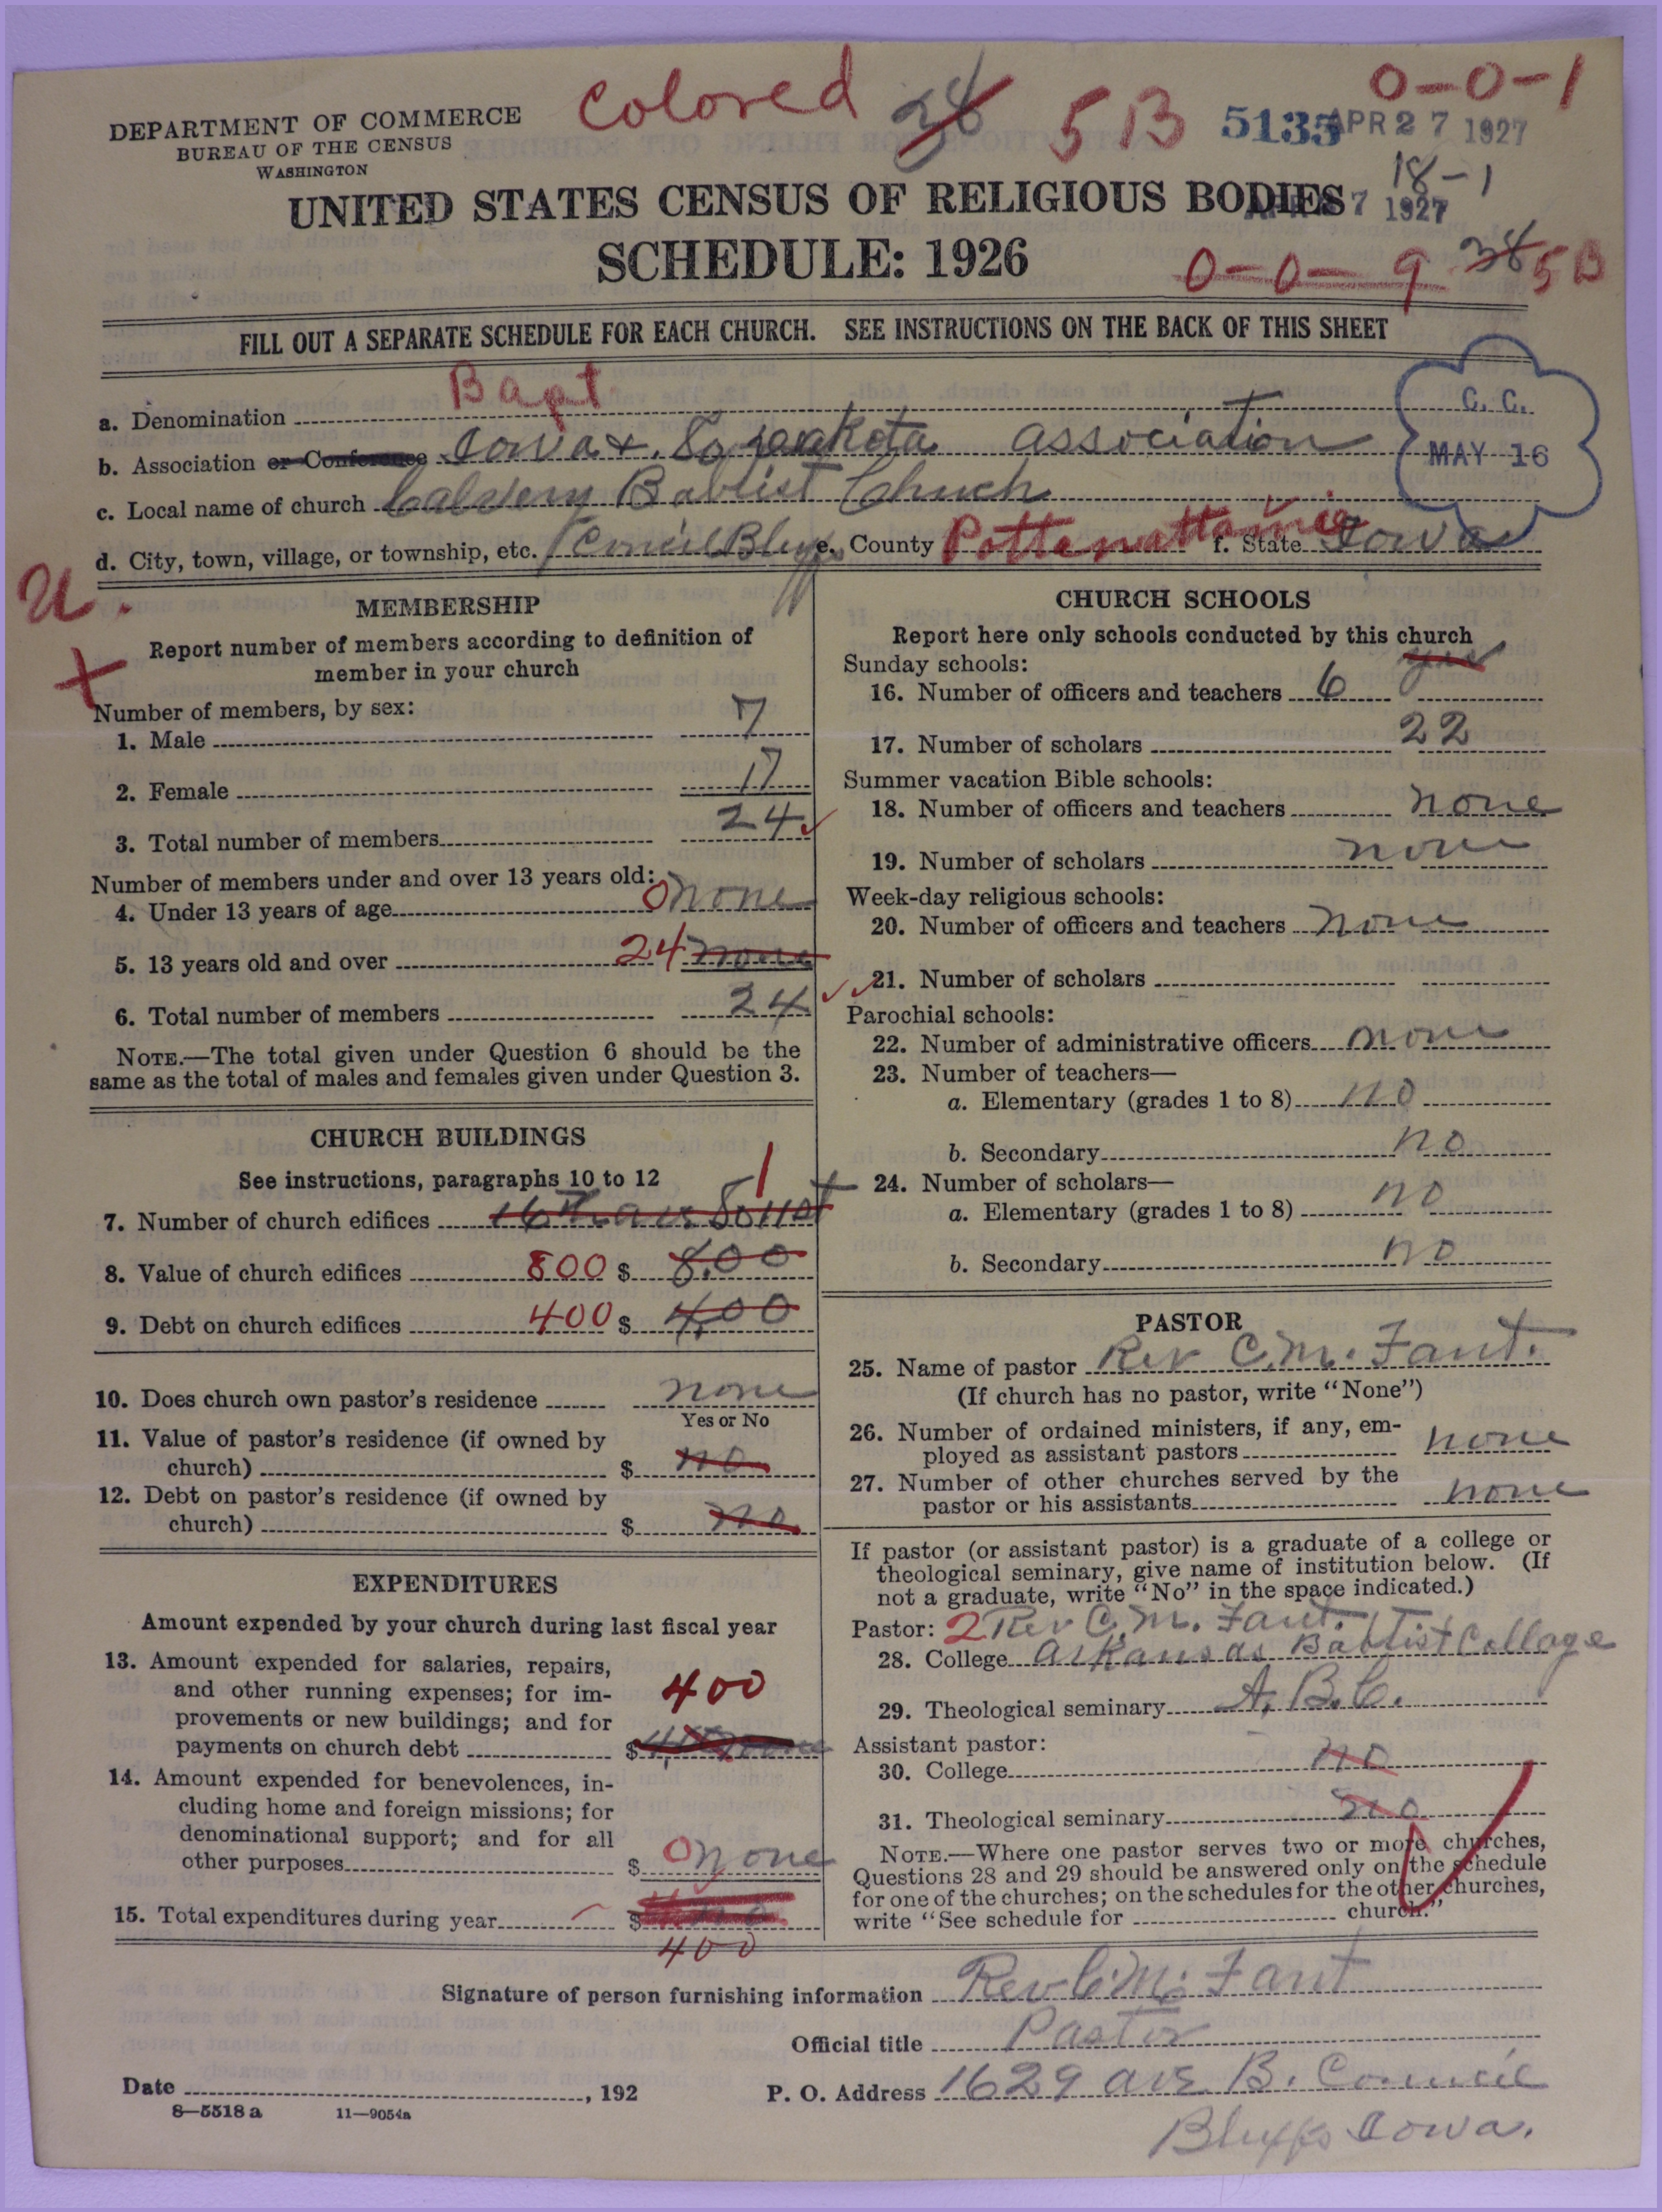 Colored 38 5B 0-0-1
DEPARTMENT OF COMMERCE
BUREAU OF THE CENSUS
WASHINGTON
5135 APR 27 1927
18-1
UNITED STATES CENSUS OF RELIGIOUS BODIES
7 1927
SCHEDULE: 1926
0-0-9 38 5B
FILL OUT A SEPARATE SCHEDULE FOR EACH CHURCH. SEE INSTRUCTIONS ON THE BACK OF THIS SHEET
a. Denomination Bapt
C. C.
MAY 16
b. Association or Conference Iowa + So Dakota association
c. Local name of church Calvery Babtist Chuch
d. City, town, village, or township, etc. Concil Bluffs e. County Pottawattamie f. State Iowa
U.
MEMBERSHIP
Report number of members according to definition of
member in your church
Number of members, by sex:
1. Male 7
2. Female 17
3. Total number of members 24
Number of members under and over 13 years old:
4. Under 13 years of age 0 none
5. 13 years old and over 24 none
6. Total number of members 24
NOTE.—The total given under Question 6 should be the
same as the total of males and females given under Question 3.
CHURCH BUILDINGS
See instructions, paragraphs 10 to 12
1
7. Number of church edifices 16th ave
8. Value of church edifices 800 $ 8.00
9. Debt on church edifices 400 $ 4.00
10. Does church own pastor's residence none
Yes or No
11. Value of pastor's residence (if owned by
church) $ no
12. Debt on pastor's residence (if owned by
church) $ no
EXPENDITURES
Amount expended by your church during last fiscal year
13. Amount expended for salaries, repairs,
and other running expenses; for im-
provements or new buildings; and for
payments on church debt $
400
14. Amount expended for benevolences, in-
cluding home and foreign missions; for
denominational support; and for all
other purposes $ 0 none
15. Total expenditures during year $
400
CHURCH SCHOOLS
Report here only schools conducted by this church
yes
Sunday schools:
16. Number of officers and teachers 6
17. Number of scholars 22
Summer vacation Bible schools:
18. Number of officers and teachers none
19. Number of scholars none
Week-day religious schools:
20. Number of officers and teachers none
21. Number of scholars
Parochial schools:
22. Number of administrative officers none
23. Number of teachers—
a. Elementary (grades 1 to 8) no
b. Secondary no
24. Number of scholars—
a. Elementary (grades 1 to 8) no
b. Secondary no
PASTOR
25. Name of pastor Rev C.M. Fant.
(If church has no pastor, write "None")
26. Number of ordained ministers, if any, em-
ployed as assistant pastors none
27. Number of other churches served by the
pastor or his assistants none
If pastor (or assistant pastor) is a graduate of a college or
theological seminary, give name of institution below. (If
not a graduate, write "No" in the space indicated.)
Pastor: 2 Rev C.M. Fant.
28. College Arkansas Babtist Collage
29. Theological seminary A, B.C.
Assistant pastor:
30. College no
31. Theological seminary no
NOTE.—Where one pastor serves two or more churches,
Questions 28 and 29 should be answered only on the schedule
for one of the churches; on the schedules for the other churches,
write "See schedule for church."
Signature of person furnishing information Rev C.M. Fant
Official title Pastor
Date , 192
P. O. Address 1629 ave B. Council
Bluffs Iowa.
8—5518 a 11—9054a